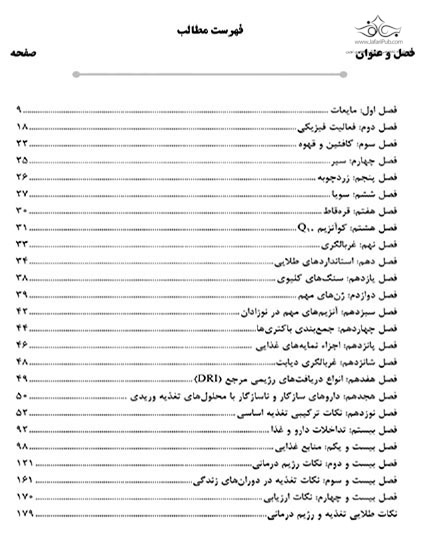 فهرست مطالب
www.JafariPub.com
فصل و عنوان صفحه
فصل اول: مایعات ........ ۹
فصل دوم: فعالیت فیزیکی ........ ۱۸
فصل سوم: کافئین و قهوه ........ ۲۳
فصل چهارم: سیر ........ ۲۵
فصل پنجم: زردچوبه ........ ۲۶
فصل ششم: سویا ........ ۲۷
فصل هفتم: قره‌قاط ........ ۳۰
فصل هشتم: کوآنزیم Q۱۰ ........ ۳۱
فصل نهم: غربالگری ........ ۳۳
فصل دهم: استانداردهای طلایی ........ ۳۴
فصل یازدهم: سنگ‌های کلیوی ........ ۳۸
فصل دوازدهم: ژن‌های مهم ........ ۳۹
فصل سیزدهم: آنزیم‌های مهم در نوزادان ........ ۴۳
فصل چهاردهم: جمع‌بندی باکتری‌ها ........ ۴۴
فصل پانزدهم: اجزاء نمایه‌های غذایی ........ ۴۶
فصل شانزدهم: غربالگری دیابت ........ ۴۸
فصل هفدهم: انواع دریافت‌های رژیمی مرجع (DRI) ........ ۴۹
فصل هجدهم: داروهای سازگار و ناسازگار با محلول‌های تغذیه وریدی ........ ۵۰
فصل نوزدهم: نکات ترکیبی تغذیه اساسی ........ ۵۲
فصل بیستم: تداخلات دارو و غذا ........ ۹۲
فصل بیست و یکم: منابع غذایی ........ ۹۸
فصل بیست و دوم: نکات رژیم درمانی ........ ۱۲۱
فصل بیست و سوم: نکات تغذیه در دوران‌های زندگی ........ ۱۶۱
فصل بیست و چهارم: نکات ارزیابی ........ ۱۷۰
نکات طلایی تغذیه و رژیم درمانی ........ ۱۷۹